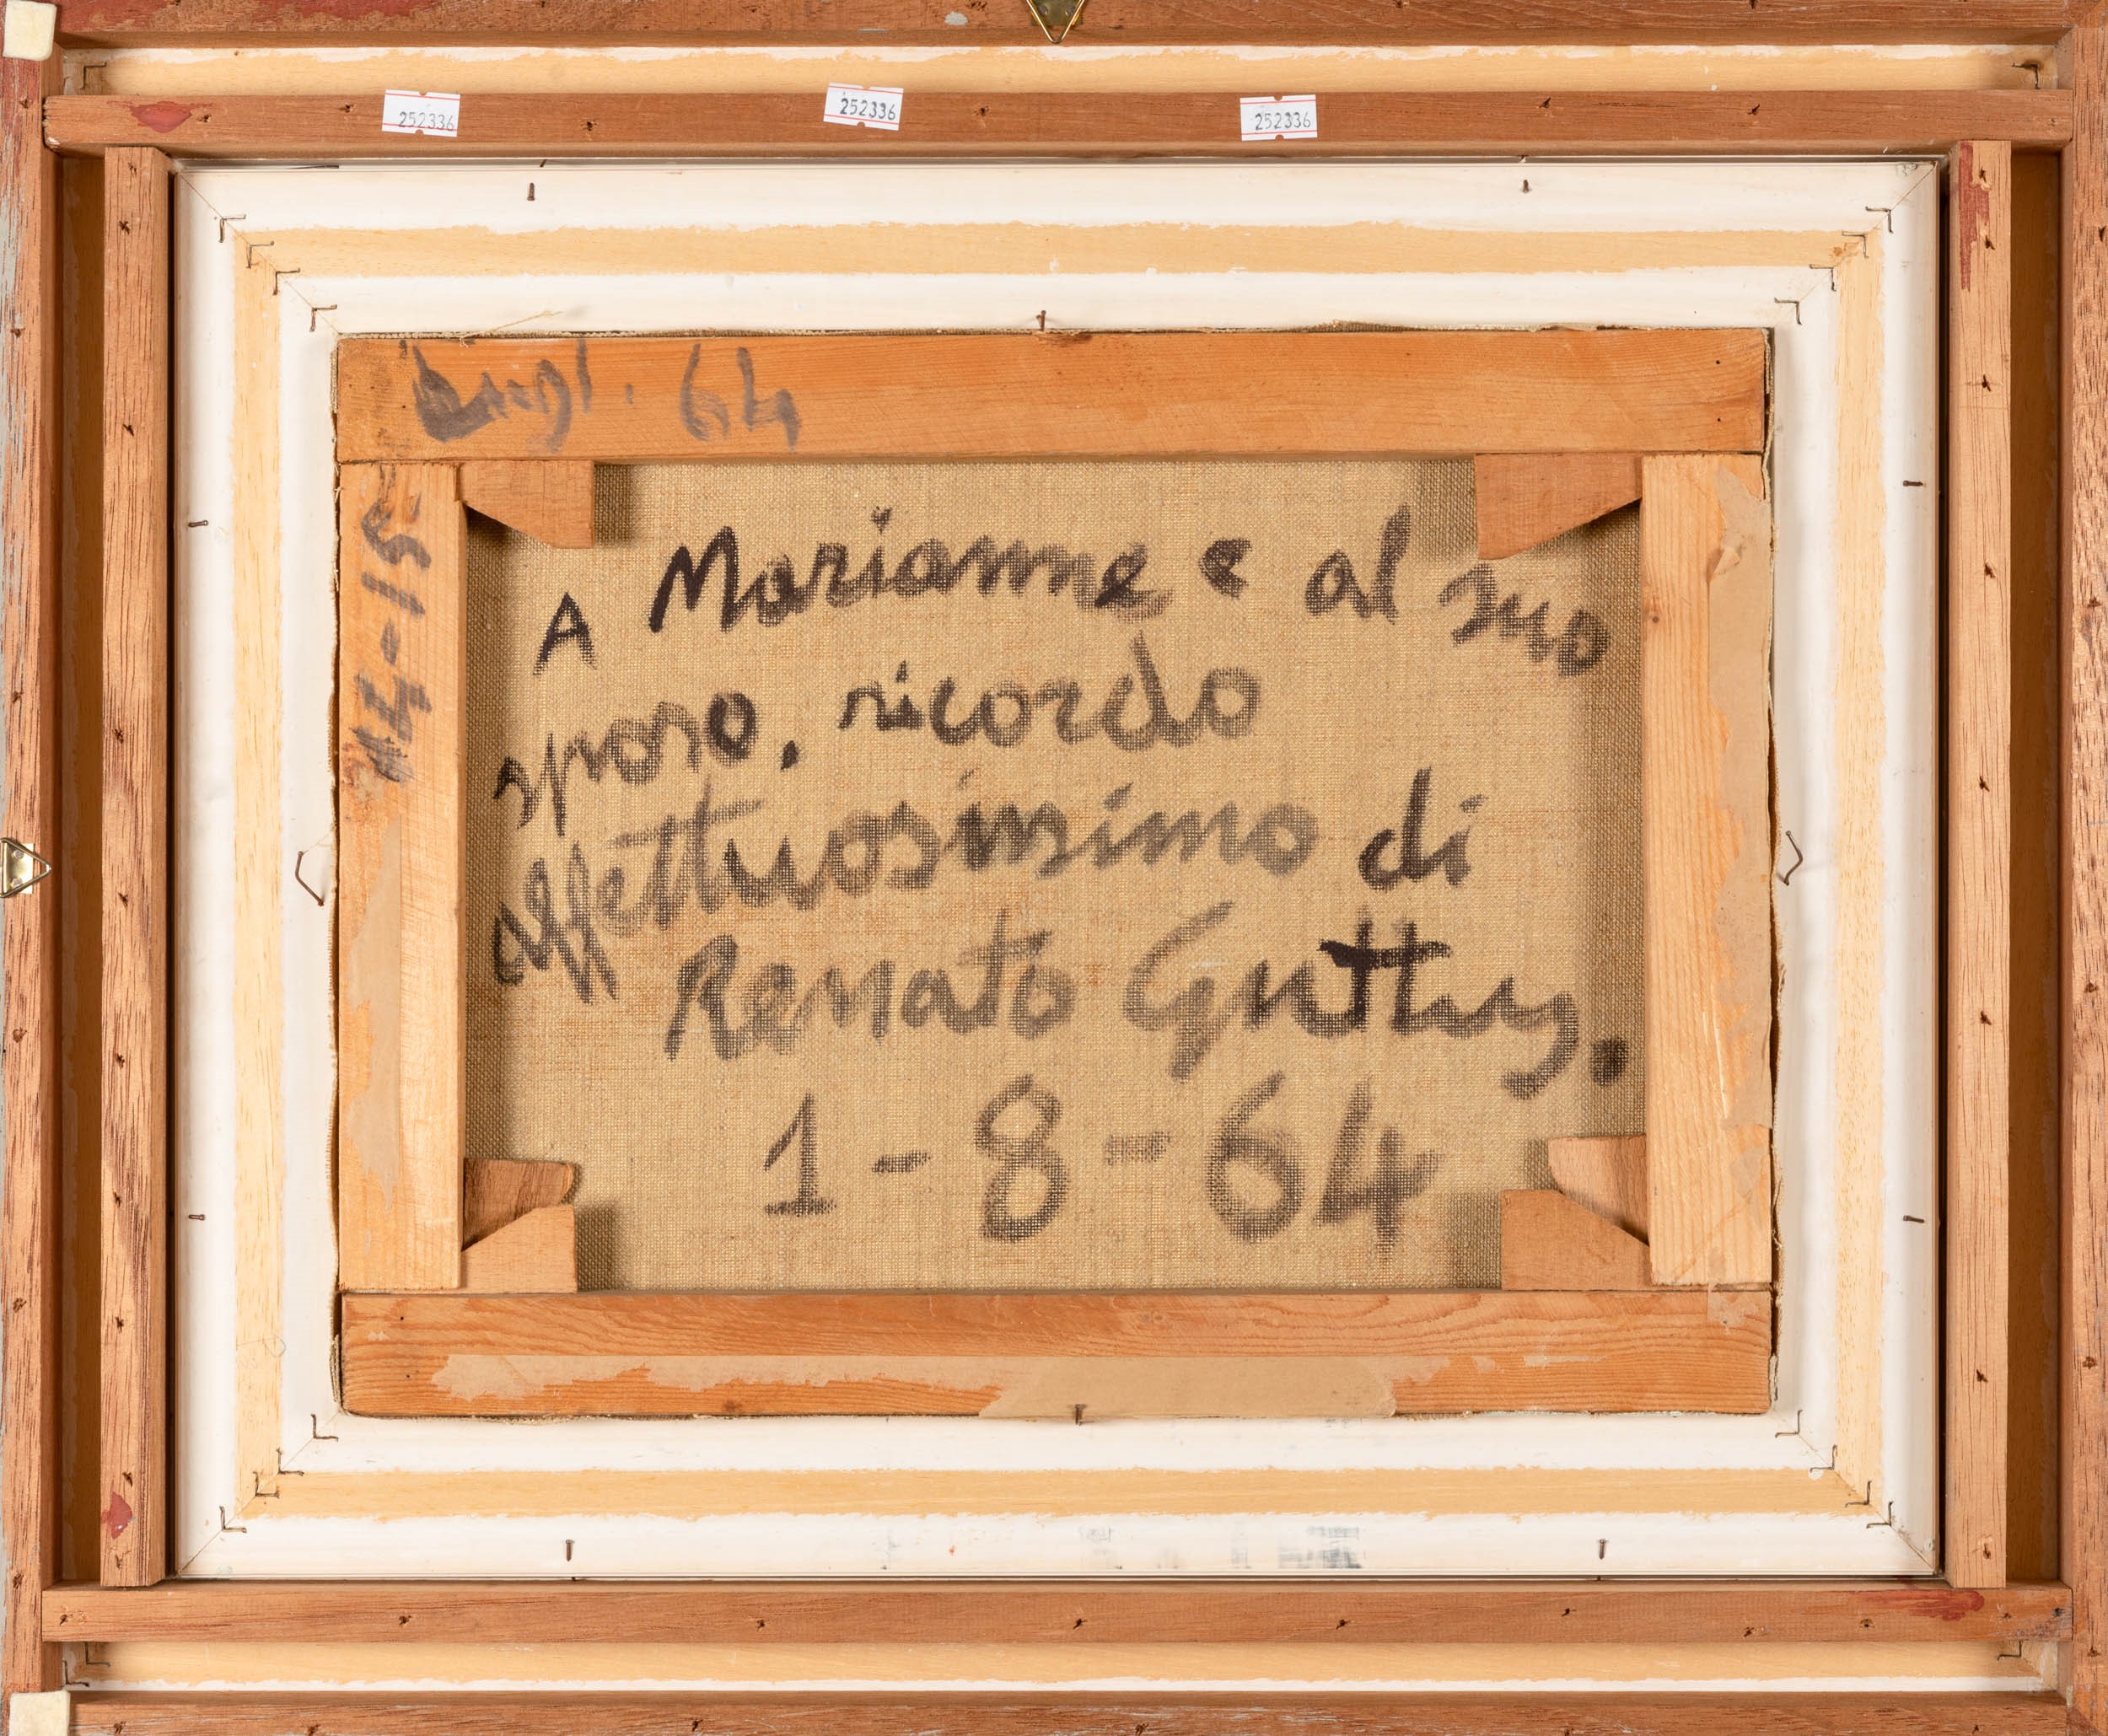 252336
252336
252336
Lugl. 64
A Marianne e al suo
sposo, ricordo
affettuosissimo di
Renato Guttuso.
1-8-64